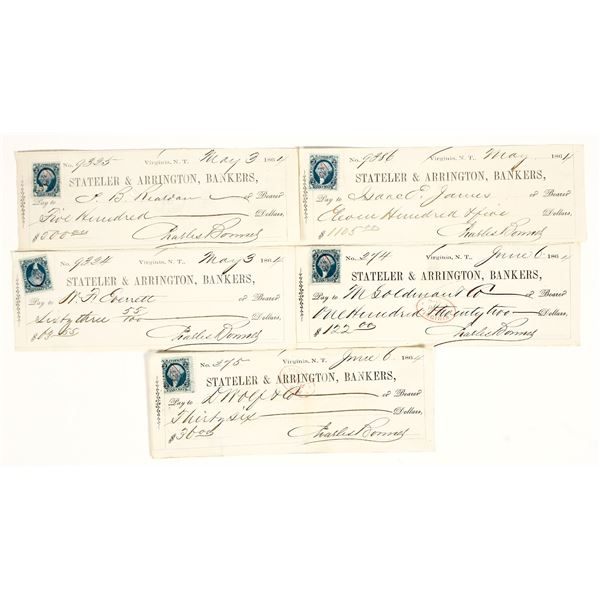 No. 9325 Virginia, N. T. May 3 1864
STATELER & ARRINGTON, BANKERS,
Pay to J. B. Reardan or Bearer
Five Hundred Dollars,
$500.00 Charles Bonner
No. 9386 Virginia, N. T. May 1864
STATELER & ARRINGTON, BANKERS,
Pay to Isaac E. James or Bearer
Eleven Hundred & five Dollars,
$1105.00 Charles Bonner
No. 9324 Virginia, N. T. May 3 1864
STATELER & ARRINGTON, BANKERS,
Pay to W. F. Everett or Bearer
Sixty three 55/100 Dollars,
$63.55 Charles Bonner
No. 274 Virginia, N. T. June 6 1864
STATELER & ARRINGTON, BANKERS,
Pay to M. Goldman & Co or Bearer
One Hundred & Twenty two Dollars,
$122.00 Charles Bonner
No. 375 Virginia, N. T. June 6 1864
STATELER & ARRINGTON, BANKERS,
Pay to D Wolf & Co or Bearer
Thirty Six Dollars,
$36.00 Charles Bonner